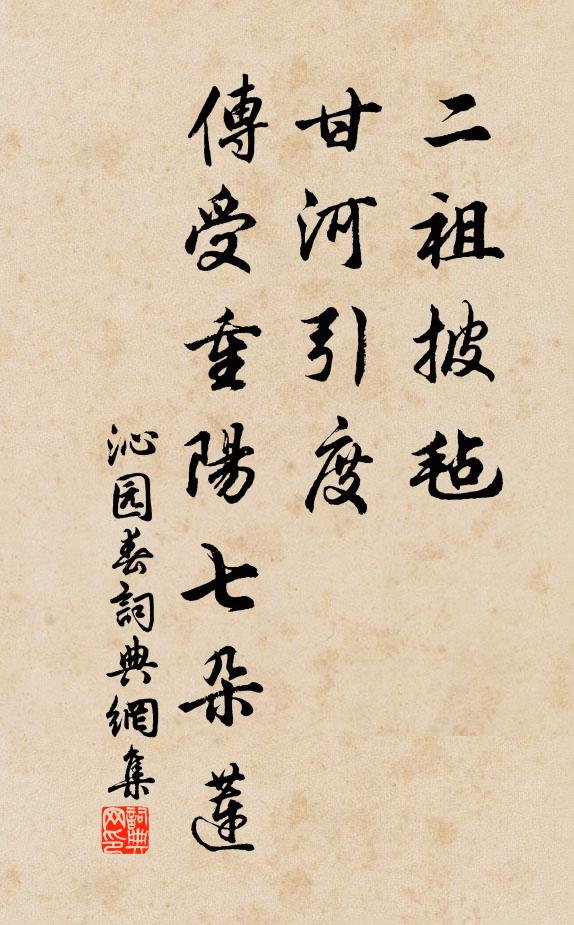 二祖披毡
甘河引度
傳受重陽七朵蓮
沁园春詞典網集
詞典
网印